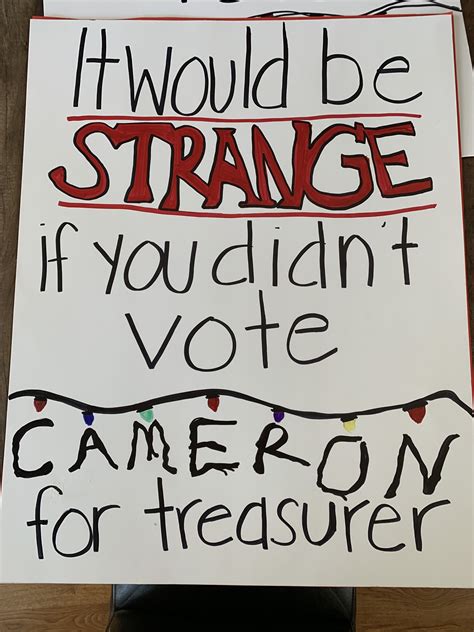 It would be
STRANGE
if you didn't
vote
CAMERON
for treasurer